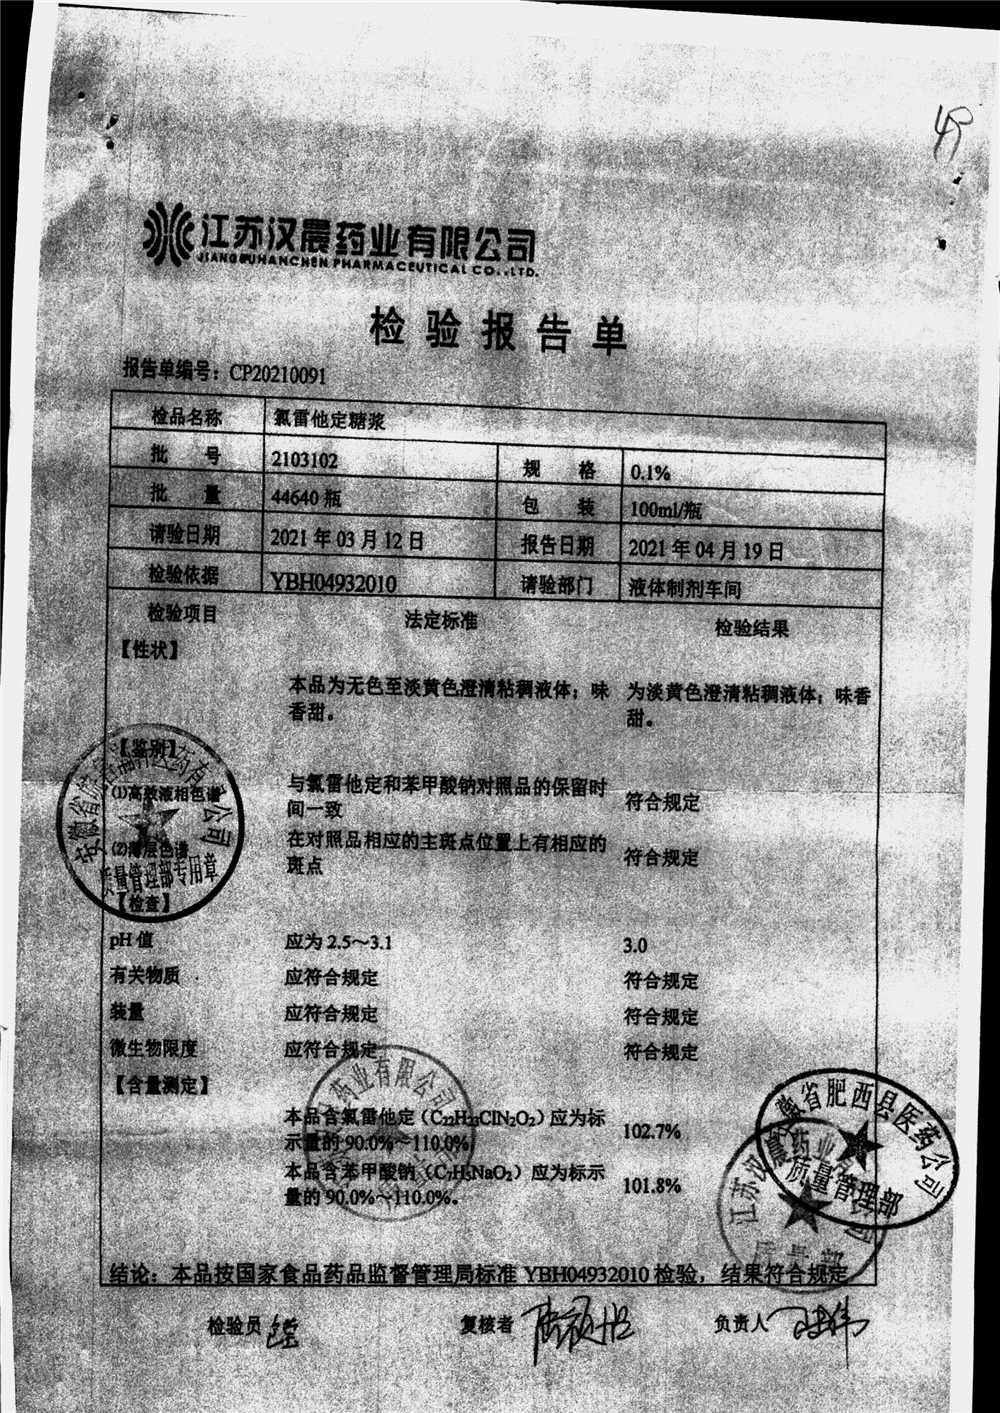 49
江苏汉晨药业有限公司
JIANGSUHANCHEN PHARMACEUTICAL CO.,LTD.
检验报告单
报告单编号：CP20210091
检品名称 氯雷他定糖浆
批 号 2103102 规 格 0.1%
批 量 44640 瓶 包 装 100ml/瓶
请验日期 2021 年 03 月 12 日 报告日期 2021 年 04 月 19 日
检验依据 YBH04932010 请验部门 液体制剂车间
检验项目 法定标准 检验结果
【性状】
本品为无色至淡黄色澄清粘稠液体；味 为淡黄色澄清粘稠液体；味香
香甜。 甜。
【鉴别】
(1)高效液相色谱 与氯雷他定和苯甲酸钠对照品的保留时 符合规定
间一致
(2)薄层色谱 在对照品相应的主斑点位置上有相应的 符合规定
斑点
质量管理部专用章
【检查】
pH 值 应为 2.5～3.1 3.0
有关物质 应符合规定 符合规定
装量 应符合规定 符合规定
微生物限度 应符合规定 符合规定
【含量测定】
药业有限公司
本品含氯雷他定（C₂₂H₂₃ClN₂O₂）应为标 102.7%
示量的 90.0%～110.0%
本品含苯甲酸钠（C₇H₅NaO₂）应为标示 101.8%
量的 90.0%～110.0%。
安徽省肥西县医药公司
质量管理部
江苏汉晨药业有限公司
质量部
结论：本品按国家食品药品监督管理局标准 YBH04932010 检验，结果符合规定
检验员 复核者 负责人